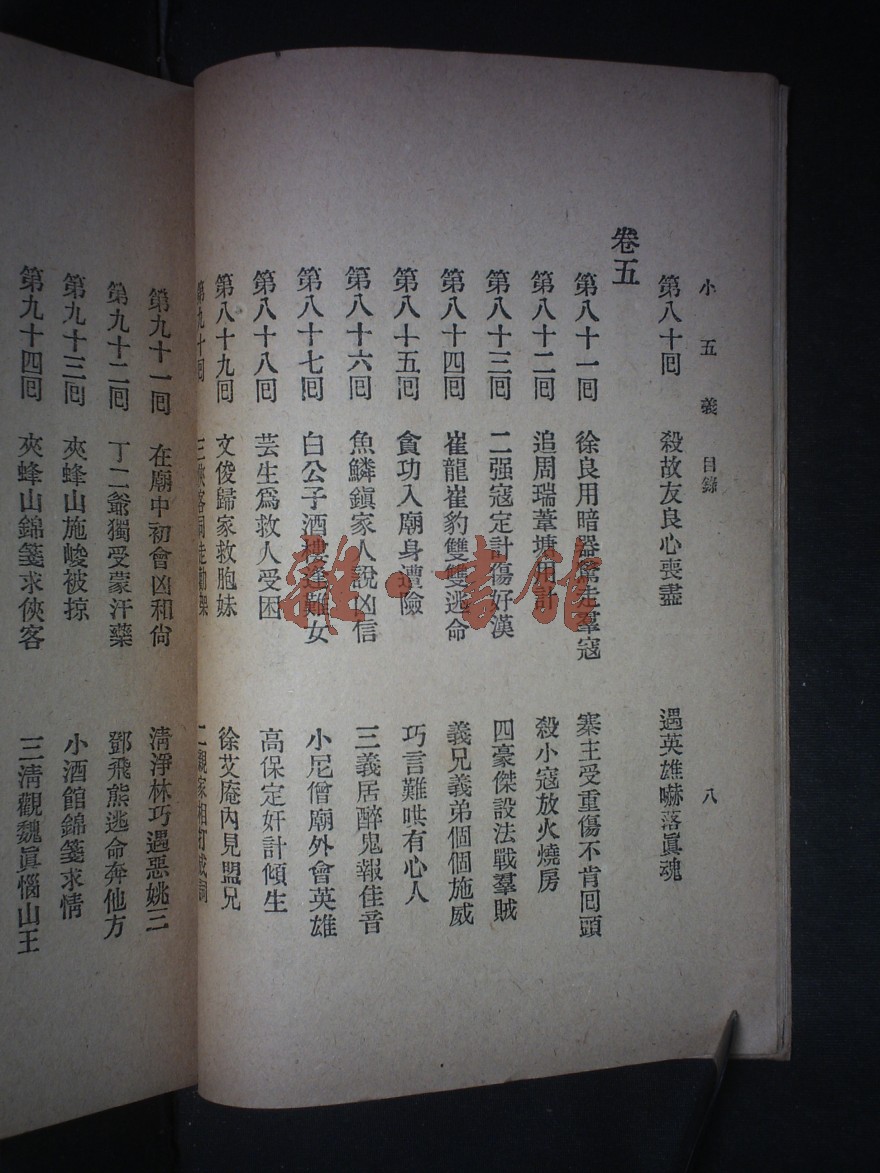 小五義 目錄 八
第八十回 殺故友良心喪盡 遇英雄嚇落眞魂
卷五
第八十一回 徐良用暗器驚走羣寇 寨主受重傷不肯回頭
第八十二回 追周瑞葦塘用計 殺小寇放火燒房
第八十三回 二强寇定計傷好漢 四豪傑設法戰羣賊
第八十四回 崔龍崔豹雙雙逃命 義兄義弟個個施威
第八十五回 貪功入廟身遭險 巧言難哄有心人
第八十六回 魚鱗鎭家人說凶信 三義居醉鬼報佳音
第八十七回 白公子酒樓逢難女 小尼僧廟外會英雄
第八十八回 芸生爲救人受困 高保定奸計傾生
第八十九回 文俊歸家救胞妹 徐艾庵內見盟兄
第九十回 三俠客同走 二親家相打成詞
第九十一回 在廟中初會凶和尙 淸淨林巧遇惡姚三
第九十二回 丁二爺獨受蒙汗藥 鄧飛熊逃命奔他方
第九十三回 夾蜂山施峻被掠 小酒館錦箋求情
第九十四回 夾蜂山錦箋求俠客 三淸觀魏眞惱山王
雜·書館